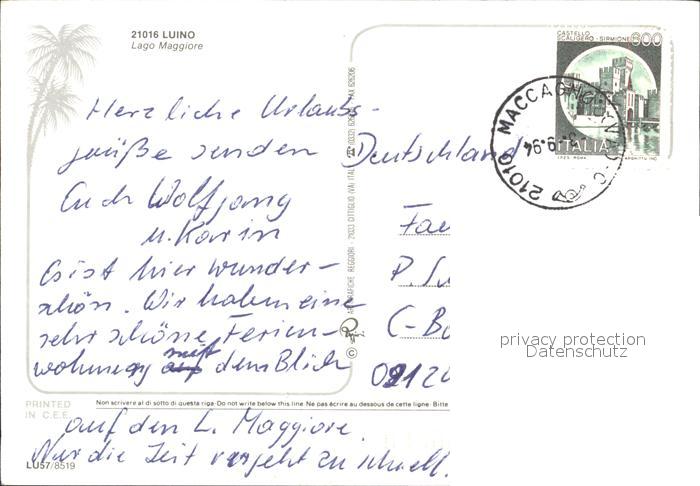 21016 LUINO
Lago Maggiore
CASTELLO
SCALIGERO - SIRMIONE 600
ITALIA
I.P.Z.S. ROMA
21010 MACCAGNO
9.94
Herzliche Urlaubs-
grüße senden
Euch Wolfgang
u. Karin
Es ist hier wunder-
schön. Wir haben eine
sehr schöne Ferien-
wohnung mit dem Blick
auf den L. Maggiore.
Nur die Zeit vergeht zu schnell.
Deutschland
Fa
P.
C-B
privacy protection
Datenschutz
PRINTED
IN C.E.E.
Non scrivere al di sotto di questa riga - Do not write below this line - Ne pas écrire au dessous de cette ligne - Bitte
LU57/8519